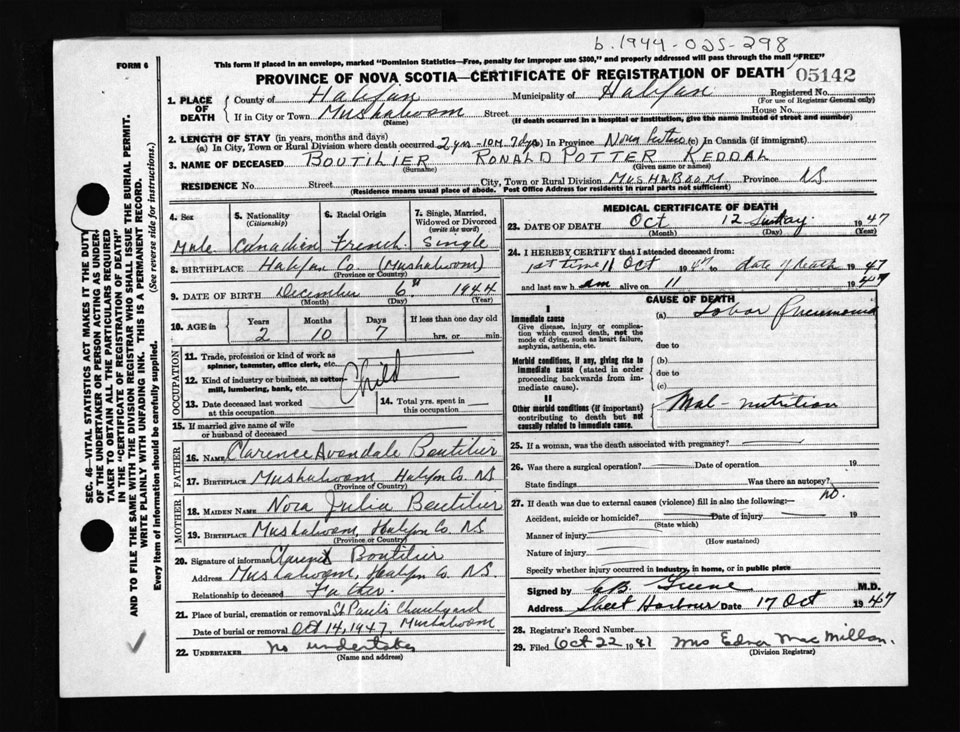 b. 1944-025-298
FORM 6
This form if placed in an envelope, marked "Dominion Statistics—Free, penalty for improper use $300," and properly addressed will pass through the mail "FREE"
PROVINCE OF NOVA SCOTIA—CERTIFICATE OF REGISTRATION OF DEATH 05142
1. PLACE OF DEATH
County of Halifax Municipality of Halifax Registered No.
(For use of Registrar General only)
If in City or Town Mushaboom Street House No.
(Name) (If death occurred in a hospital or institution, give the name instead of street and number)
2. LENGTH OF STAY (in years, months and days)
(a) In City, Town or Rural Division where death occurred 2 yrs - 10 m. 7 dys (b) In Province Nova Scotia (c) In Canada (if immigrant)
3. NAME OF DECEASED BOUTILIER RONALD POTTER KEDDAL
(Surname) (Given name or names)
RESIDENCE No. Street City, Town or Rural Division MUSHABOOM Province NS
(Residence means usual place of abode. Post Office Address for residents in rural parts not sufficient)
4. Sex
Male
5. Nationality
(Citizenship)
Canadian
6. Racial Origin
French
7. Single, Married, Widowed or Divorced
(write the word)
Single
8. BIRTHPLACE Halifax Co. (Mushaboom)
(Province or Country)
9. DATE OF BIRTH December 6" 1944
(Month) (Day) (Year)
10. AGE in
Years Months Days If less than one day old
2 10 7 hrs. or min.
OCCUPATION
11. Trade, profession or kind of work as
spinner, teamster, office clerk, etc.
12. Kind of industry or business, as cotton
mill, lumbering, bank, etc.
Child
13. Date deceased last worked
at this occupation
14. Total yrs. spent in
this occupation
15. If married give name of wife
or husband of deceased
FATHER
16. NAME Clarence Avondale Boutilier
17. BIRTHPLACE Mushaboom Halifax Co. NS
(Province of Country)
MOTHER
18. MAIDEN NAME Nora Julia Boutilier
19. BIRTHPLACE Mushaboom, Halifax Co. NS
(Province or Country)
20. Signature of informant Clarence Boutilier
Address Mushaboom, Halifax Co. NS.
Relationship to deceased Father.
21. Place of burial, cremation or removal St Pauls Churchyard
Mushaboom
Date of burial or removal Oct 14, 1947,
22. UNDERTAKER no undertaker
(Name and address)
MEDICAL CERTIFICATE OF DEATH
23. DATE OF DEATH Oct 12 Sunday 1947
(Month) (Day) (Year)
24. I HEREBY CERTIFY that I attended deceased from:
1st time 11 Oct 1947 to date of death 1947
and last saw him alive on 11 1947
CAUSE OF DEATH
I
Immediate cause
Give disease, injury or complication which caused death, not the mode of dying, such as heart failure, asphyxia, asthenia, etc.
(a) Lobar Pneumonia
due to
Morbid conditions, if any, giving rise to immediate cause (stated in order proceeding backwards from immediate cause).
(b)
due to
(c)
II
Other morbid conditions (if important) contributing to death but not causally related to immediate cause.
Mal-nutrition
25. If a woman, was the death associated with pregnancy?
26. Was there a surgical operation? Date of operation 19
State findings Was there an autopsy? no.
27. If death was due to external causes (violence) fill in also the following:—
Accident, suicide or homicide? Date of injury 19
(State which)
Manner of injury
(How sustained)
Nature of injury
Specify whether injury occurred in industry, in home, or in public place
Signed by Greene M.D.
Address Sheet Harbour Date 17 Oct 1947
28. Registrar's Record Number
29. Filed Oct 22 1947 Mrs Edna MacMillan.
(Division Registrar)
SEC. 46—VITAL STATISTICS ACT MAKES IT THE DUTY
OF THE UNDERTAKER OR PERSON ACTING AS UNDERTAKER TO OBTAIN ALL THE PARTICULARS REQUIRED
IN THE "CERTIFICATE OF REGISTRATION OF DEATH"
AND TO FILE THE SAME WITH THE DIVISION REGISTRAR WHO SHALL ISSUE THE BURIAL PERMIT.
WRITE PLAINLY WITH UNFADING INK. THIS IS A PERMANENT RECORD.
Every item of information should be carefully supplied. (See reverse side for instructions.)